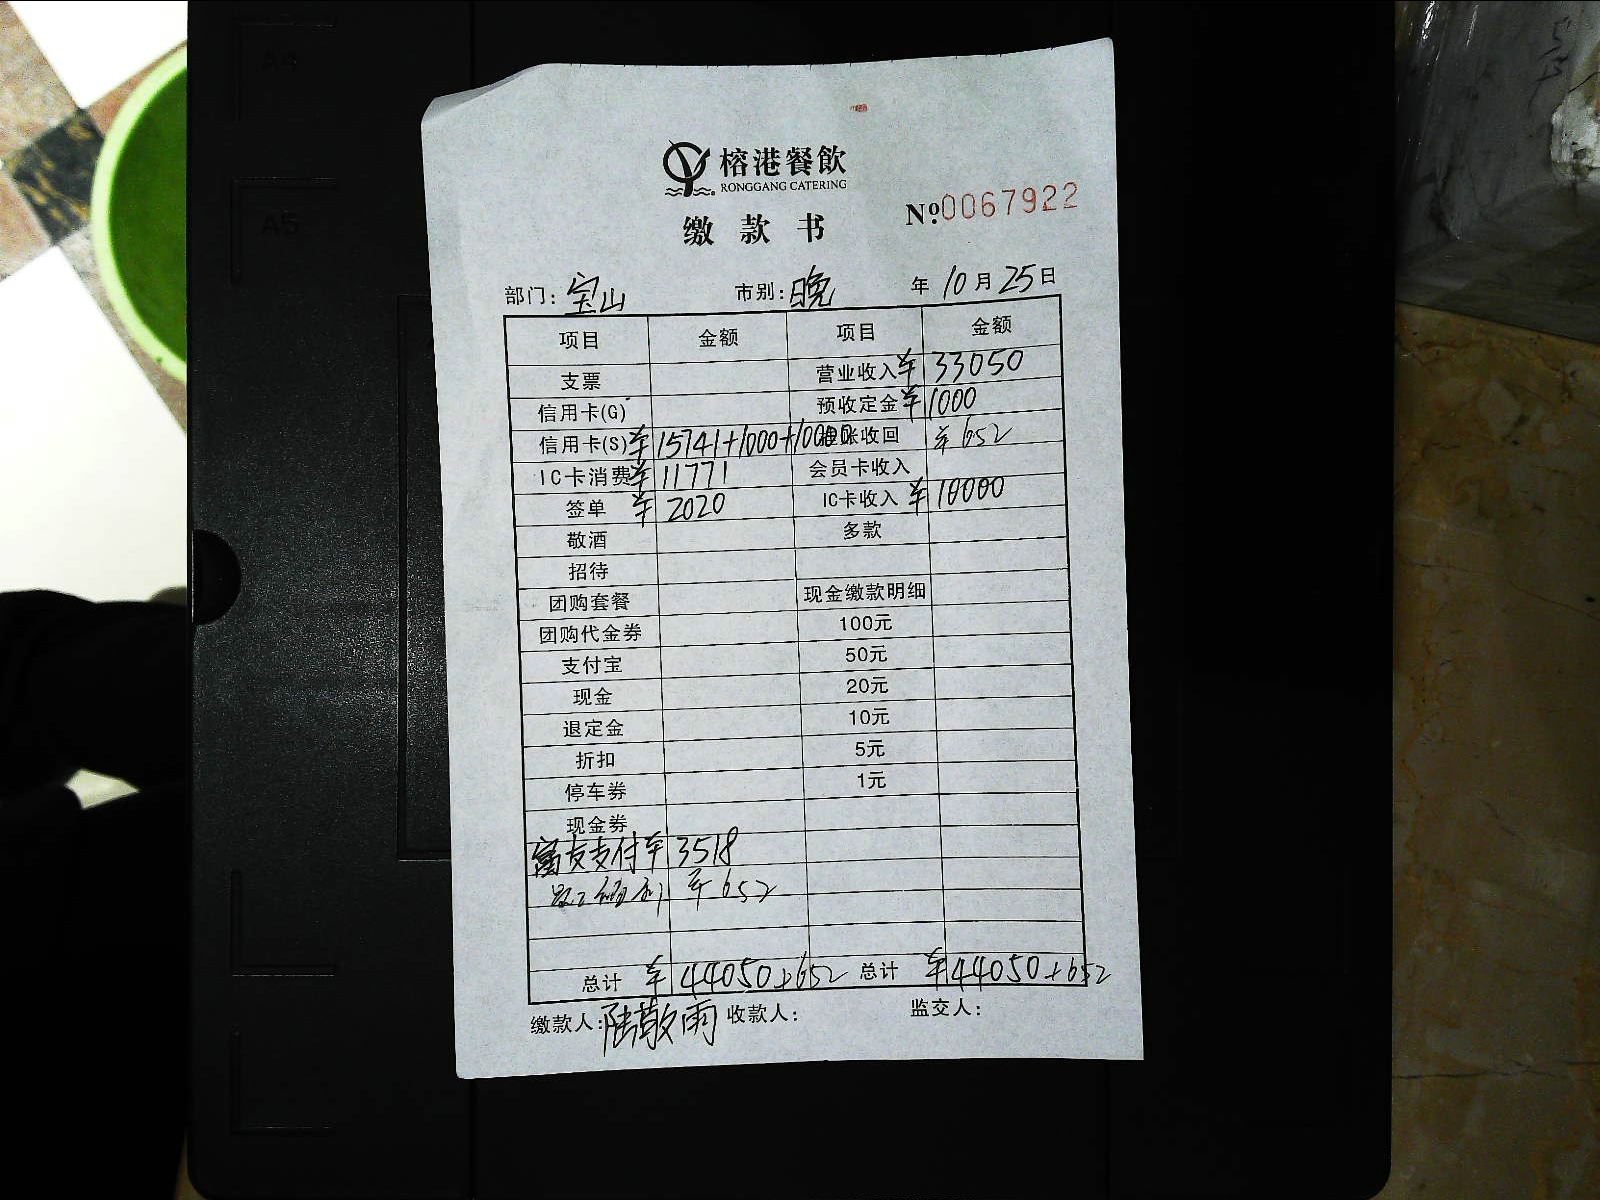 A4
A5
榕港餐飲
RONGGANG CATERING
缴款书
Nº0067922
部门: 宝山 市别: 晚 年 10 月 25 日
项目 金额 项目 金额
支票 营业收入 ¥ 33050
信用卡(G) 预收定金 ¥ 1000
信用卡(S) ¥ 15741+1000+10000 账收回 ¥ 652
IC卡消费 ¥ 11771 会员卡收入
签单 ¥ 2020 IC卡收入 ¥ 10000
敬酒 多款
招待
团购套餐 现金缴款明细
团购代金券 100元
支付宝 50元
现金 20元
退定金 10元
折扣 5元
停车券 1元
现金券
富友支付 ¥ 3518
¥ 652
总计 ¥ 44050+652 总计 ¥ 44050+652
缴款人: 陆敬雨 收款人: 监交人: